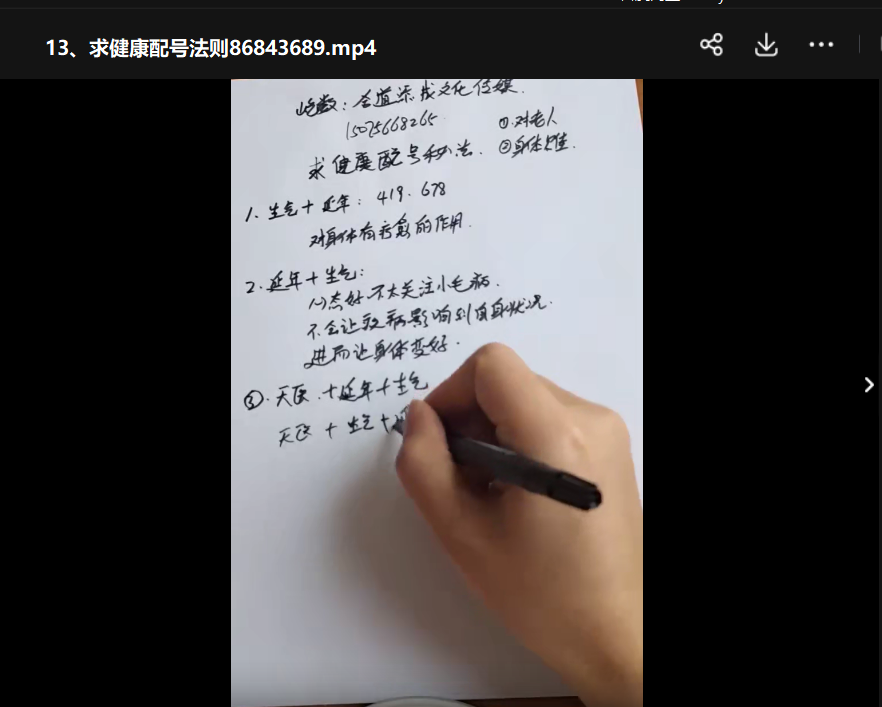 13、求健康配号法则86843689.mp4
文化传媒.
①.对老人
求健康配号秘法. ②身体健.
1. 生气+延年: 419. 678
对身体有疗愈的作用.
2. 延年+生气:
心态好不太关注小毛病.
不会让疾病影响到自身状况.
进而让身体变好.
③. 天医.+延年+生气
天医 + 生气+